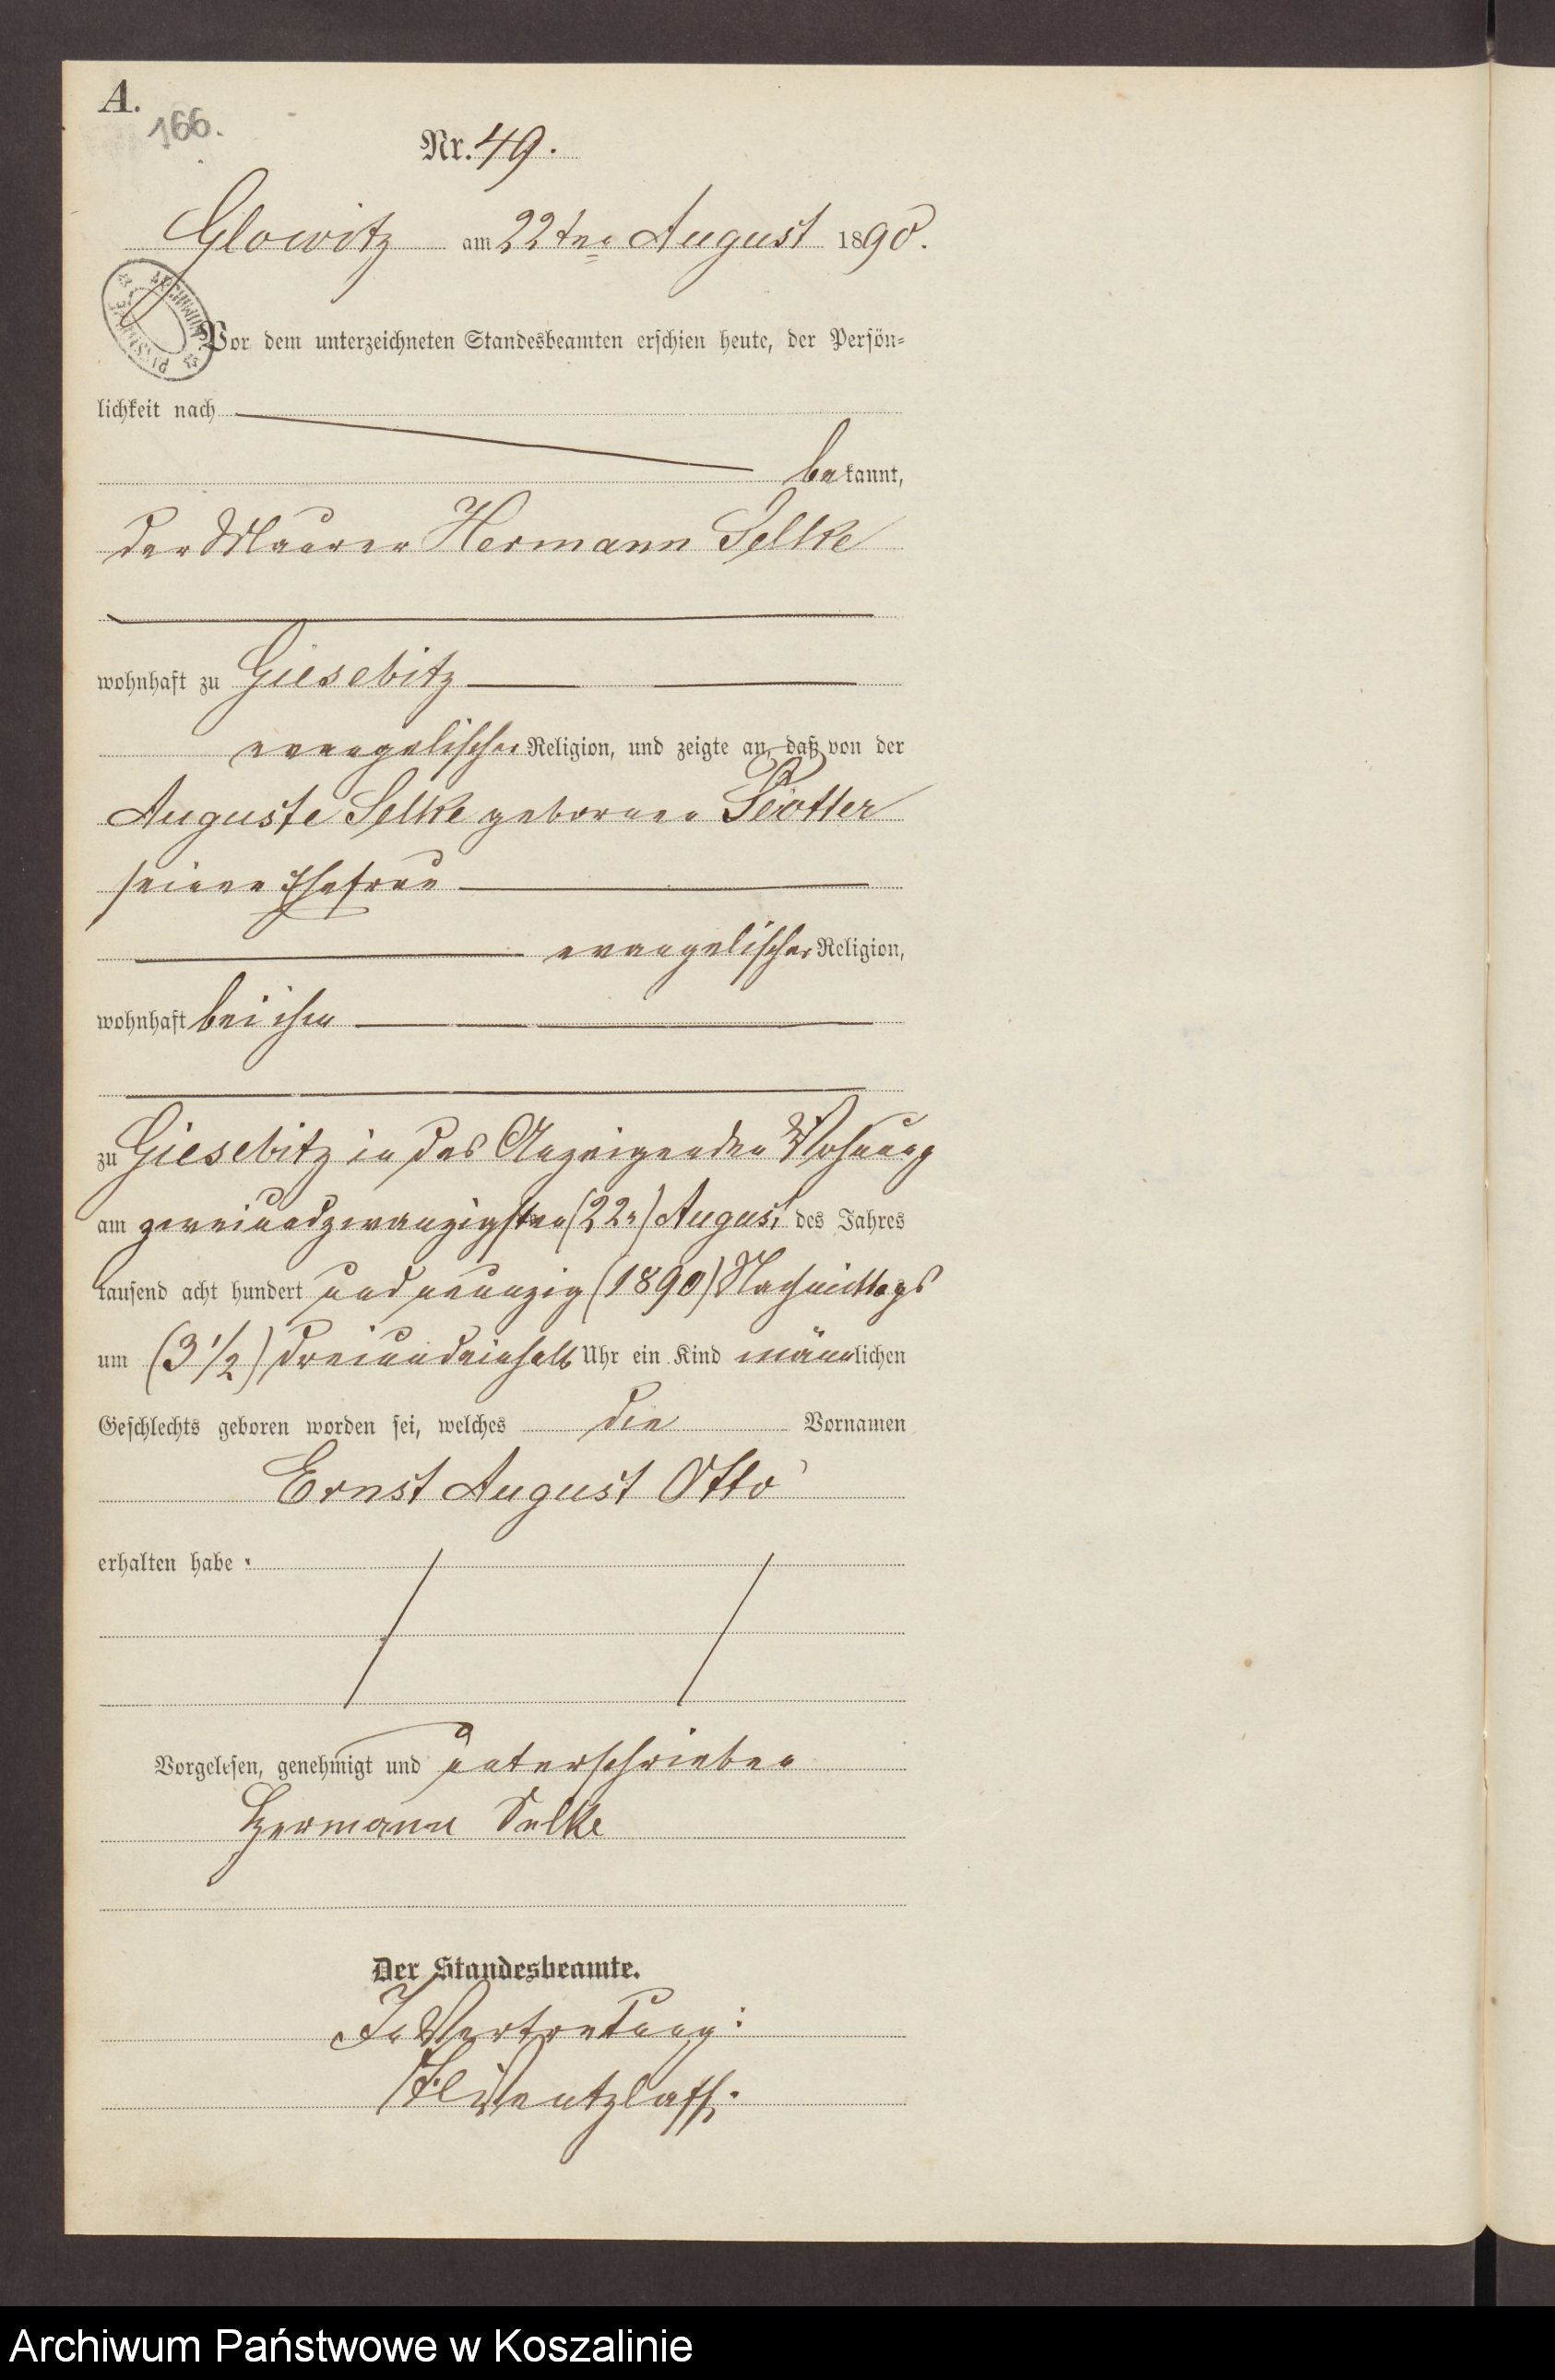 A.
166.
Nr. 49.
Glowitz am 22ten August 1890.
Vor dem unterzeichneten Standesbeamten erschien heute, der Persön-
lichkeit nach
bekannt,
der Maurer Hermann Selke
wohnhaft zu Giesebitz
evangelischer Religion, und zeigte an, daß von der
Auguste Selke geborenen
seiner Ehefrau
evangelischer Religion,
wohnhaft bei ihm
zu Giesebitz in des Anzeigenden Wohnung
am zweiundzwanzigsten (22n) August des Jahres
tausend acht hundert und neunzig (1890) Nachmittags
um (3 1/2) dreiundeinhalb Uhr ein Kind männlichen
Geschlechts geboren worden sei, welches die Vornamen
Ernst August Otto
erhalten habe.
Vorgelesen, genehmigt und unterschrieben
Hermann Selke
Der Standesbeamte.
In Vertretung:
Wentzlaff.
Archiwum Państwowe w Koszalinie